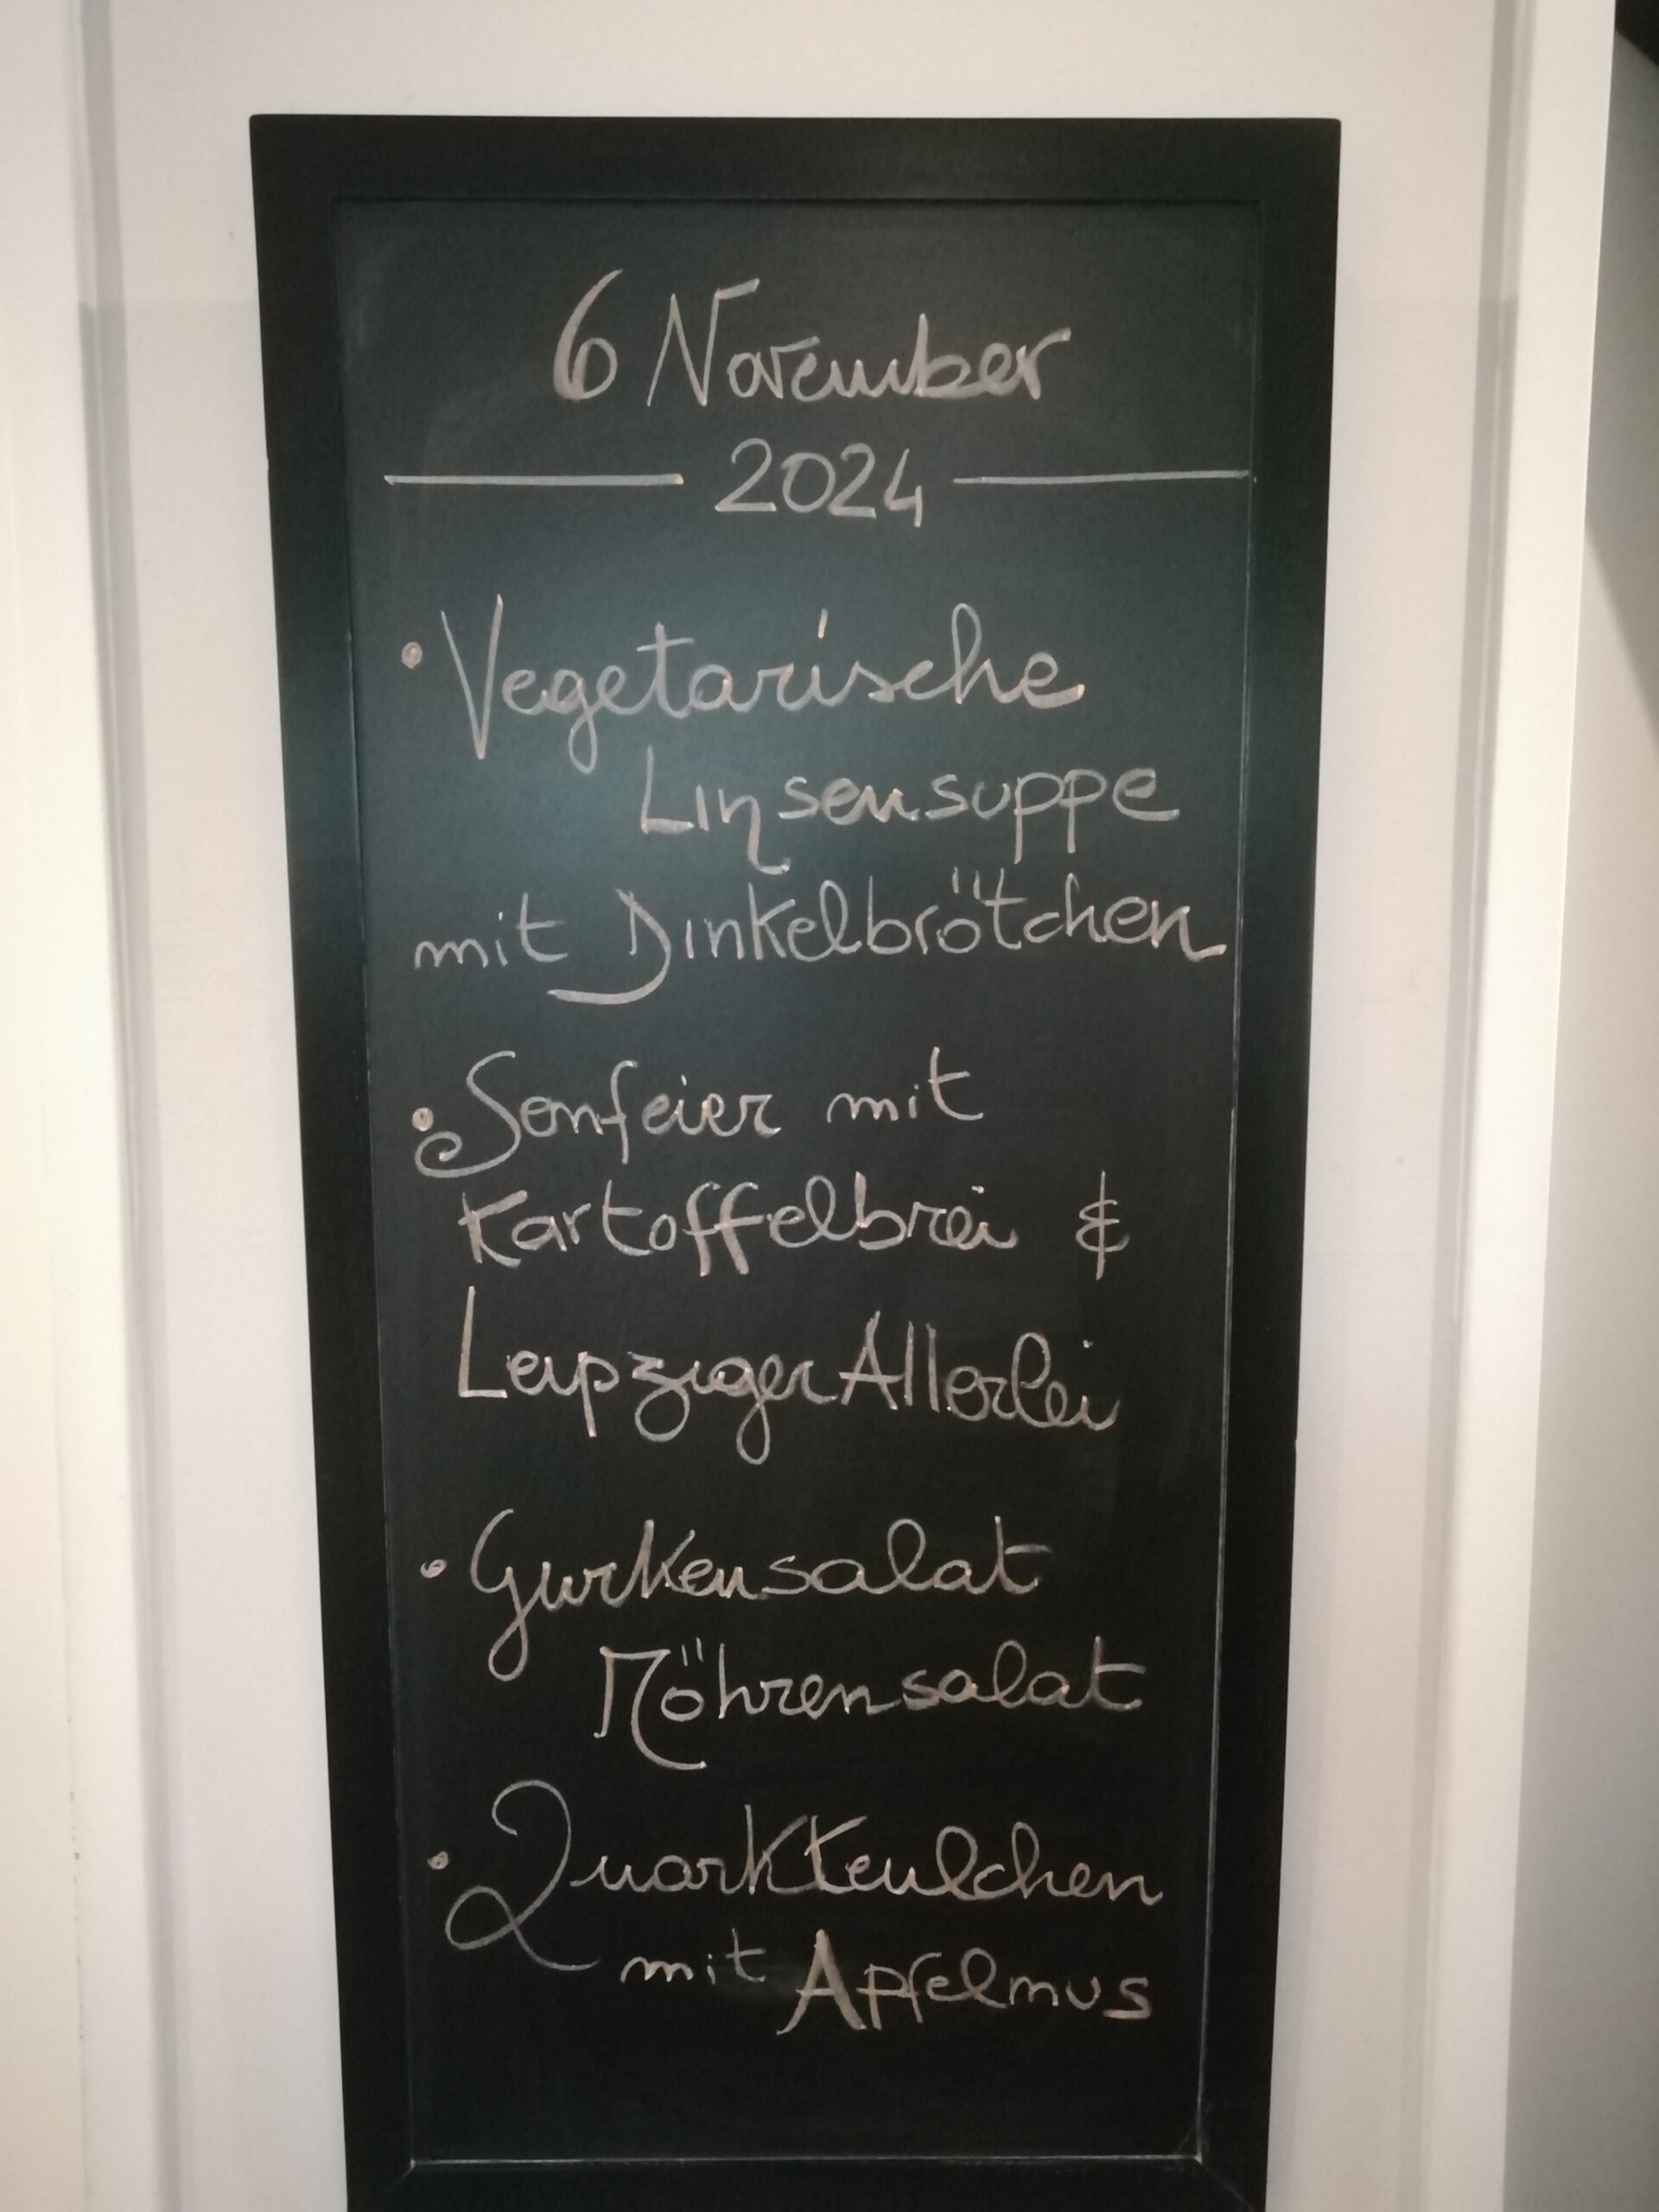 6 November
2024
• Vegetarische
Linsensuppe
mit Dinkelbrötchen
• Senfeier mit
Kartoffelbrei &
Leipziger Allerlei
• Gurkensalat
Möhrensalat
• Quarkkeulchen
mit Apfelmus